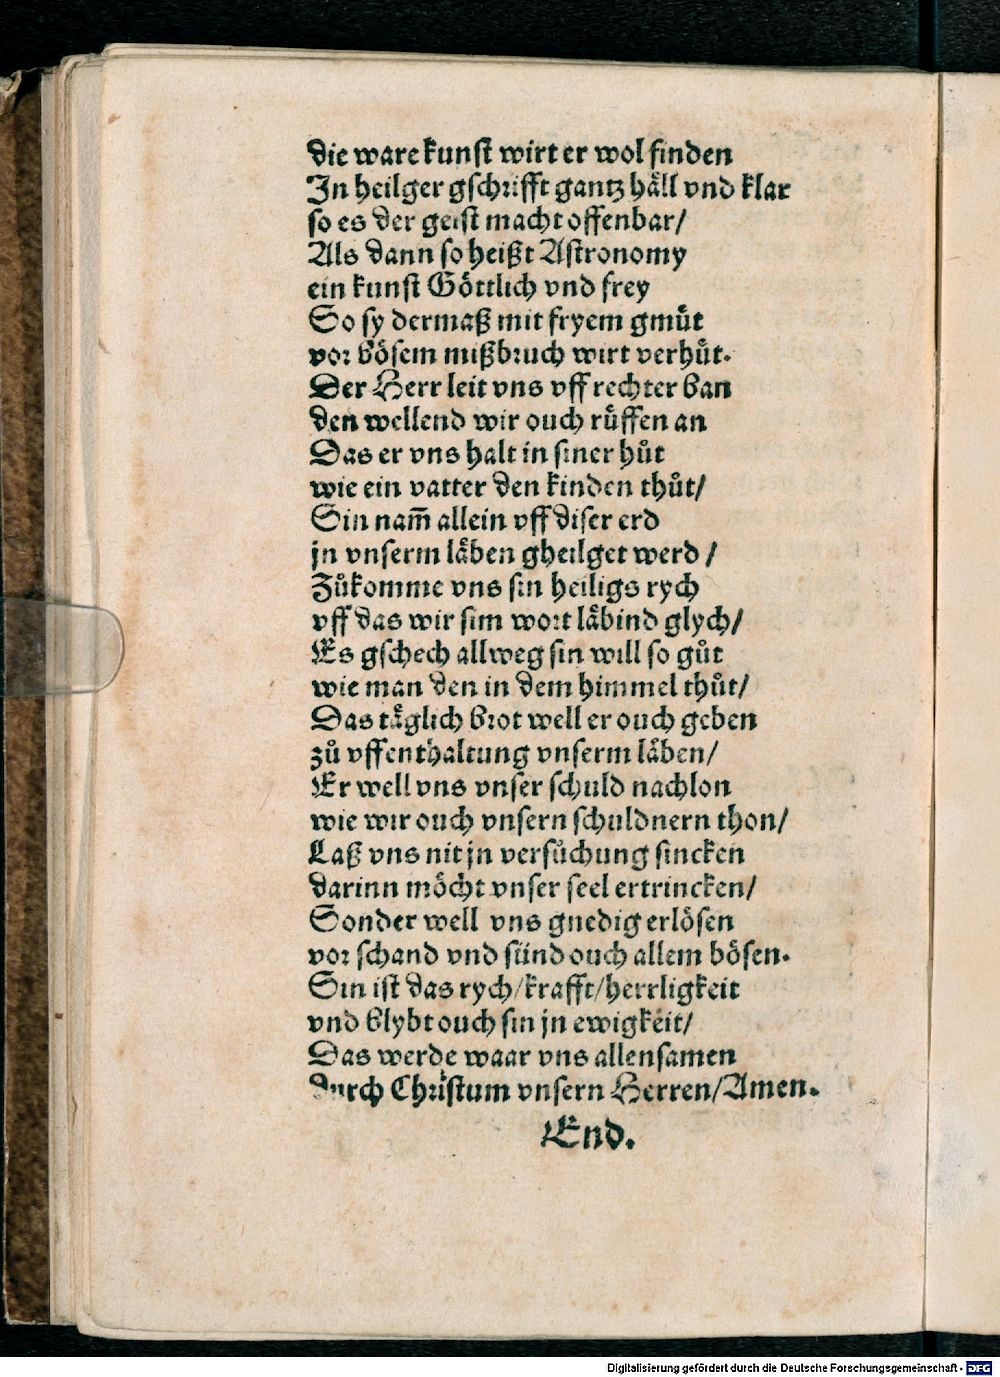 die ware kunst wirt er wol finden
In heilger gschrifft gantz häll vnd klar
so es der geist macht offenbar/
Als dann so heißt Astronomy
ein kunst Göttlich vnd frey
So sy dermaß mit fryem gmuͤt
vor boͤsem mißbruch wirt verhuͤt.
Der Herr leit vns vff rechter ban
den wellend wir ouch ruͤffen an
Das er vns halt in siner huͦt
wie ein vatter den kinden thuͦt/
Sin nam̃ allein vff diser erd
jn vnserm läben gheilget werd /
Zuͦkomme vns sin heiligs rych
vff das wir sim wort läbind glych/
Es gschech allweg sin will so guͦt
wie man den in dem himmel thuͦt/
Das täglich brot well er ouch geben
zuͦ vffenthaltung vnserm läben/
Er well vns vnser schuld nachlon
wie wir ouch vnsern schuldnern thon/
Laß vns nit jn versuͦchung sincken
darinn moͤcht vnser seel ertrincken/
Sonder well vns gnedig erloͤsen
vor schand vnd sünd ouch allem boͤsen.
Sin ist das rych/krafft/herrligkeit
vnd blybt ouch sin jn ewigkeit/
Das werde waar vns allensamen
durch Christum vnsern Herren/Amen.
End.
Digitalisierung gefördert durch die Deutsche Forschungsgemeinschaft - DFG